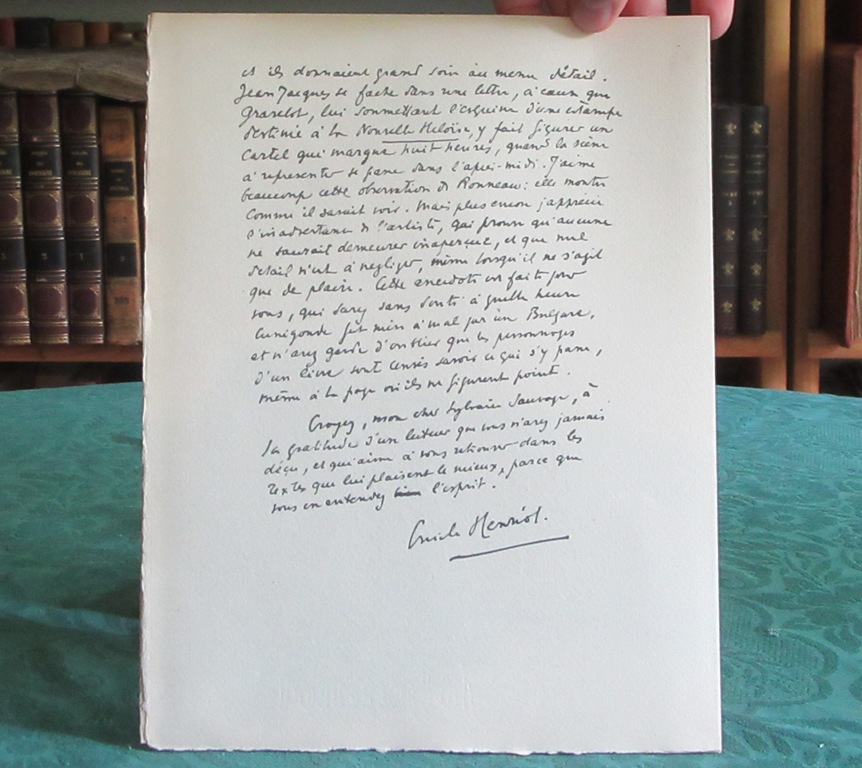 et ils donnaient grand soin au menu détail.
Jean Jacques se fache dans une lettre, à ceux que
Gravelot, lui soumettant l'esquisse d'une estampe
destinée à la Nouvelle Heloïse, y fait figurer un
cartel qui marque huit heures, quand la scène
à représenter se passe dans l'après-midi. J'aime
beaucoup cette observation de Rousseau: elle montre
comme il savait voir. Mais plus encore j'apprécie
l'inadvertance de l'artiste, qui prouve qu'aucune
ne saurait demeurer inaperçue, et que nul
détail n'est à négliger, même lorsqu'il ne s'agit
que de plaire. Cette anecdote est faite pour
vous, qui savez sans doute à quelle heure
Cunégonde fut mise à mal par un Bulgare,
et n'avez garde d'oublier que les personnages
d'un livre sont censés savoir ce qui s'y passe,
même à la page où ils ne figurent point.
Croyez, mon cher Sylvain Sauvage, à
la gratitude d'un lecteur que vous n'avez jamais
déçu, et qui aime à vous retrouver dans les
textes qui lui plaisent le mieux, parce que
vous en entendez l'esprit.
Emile Henriot.